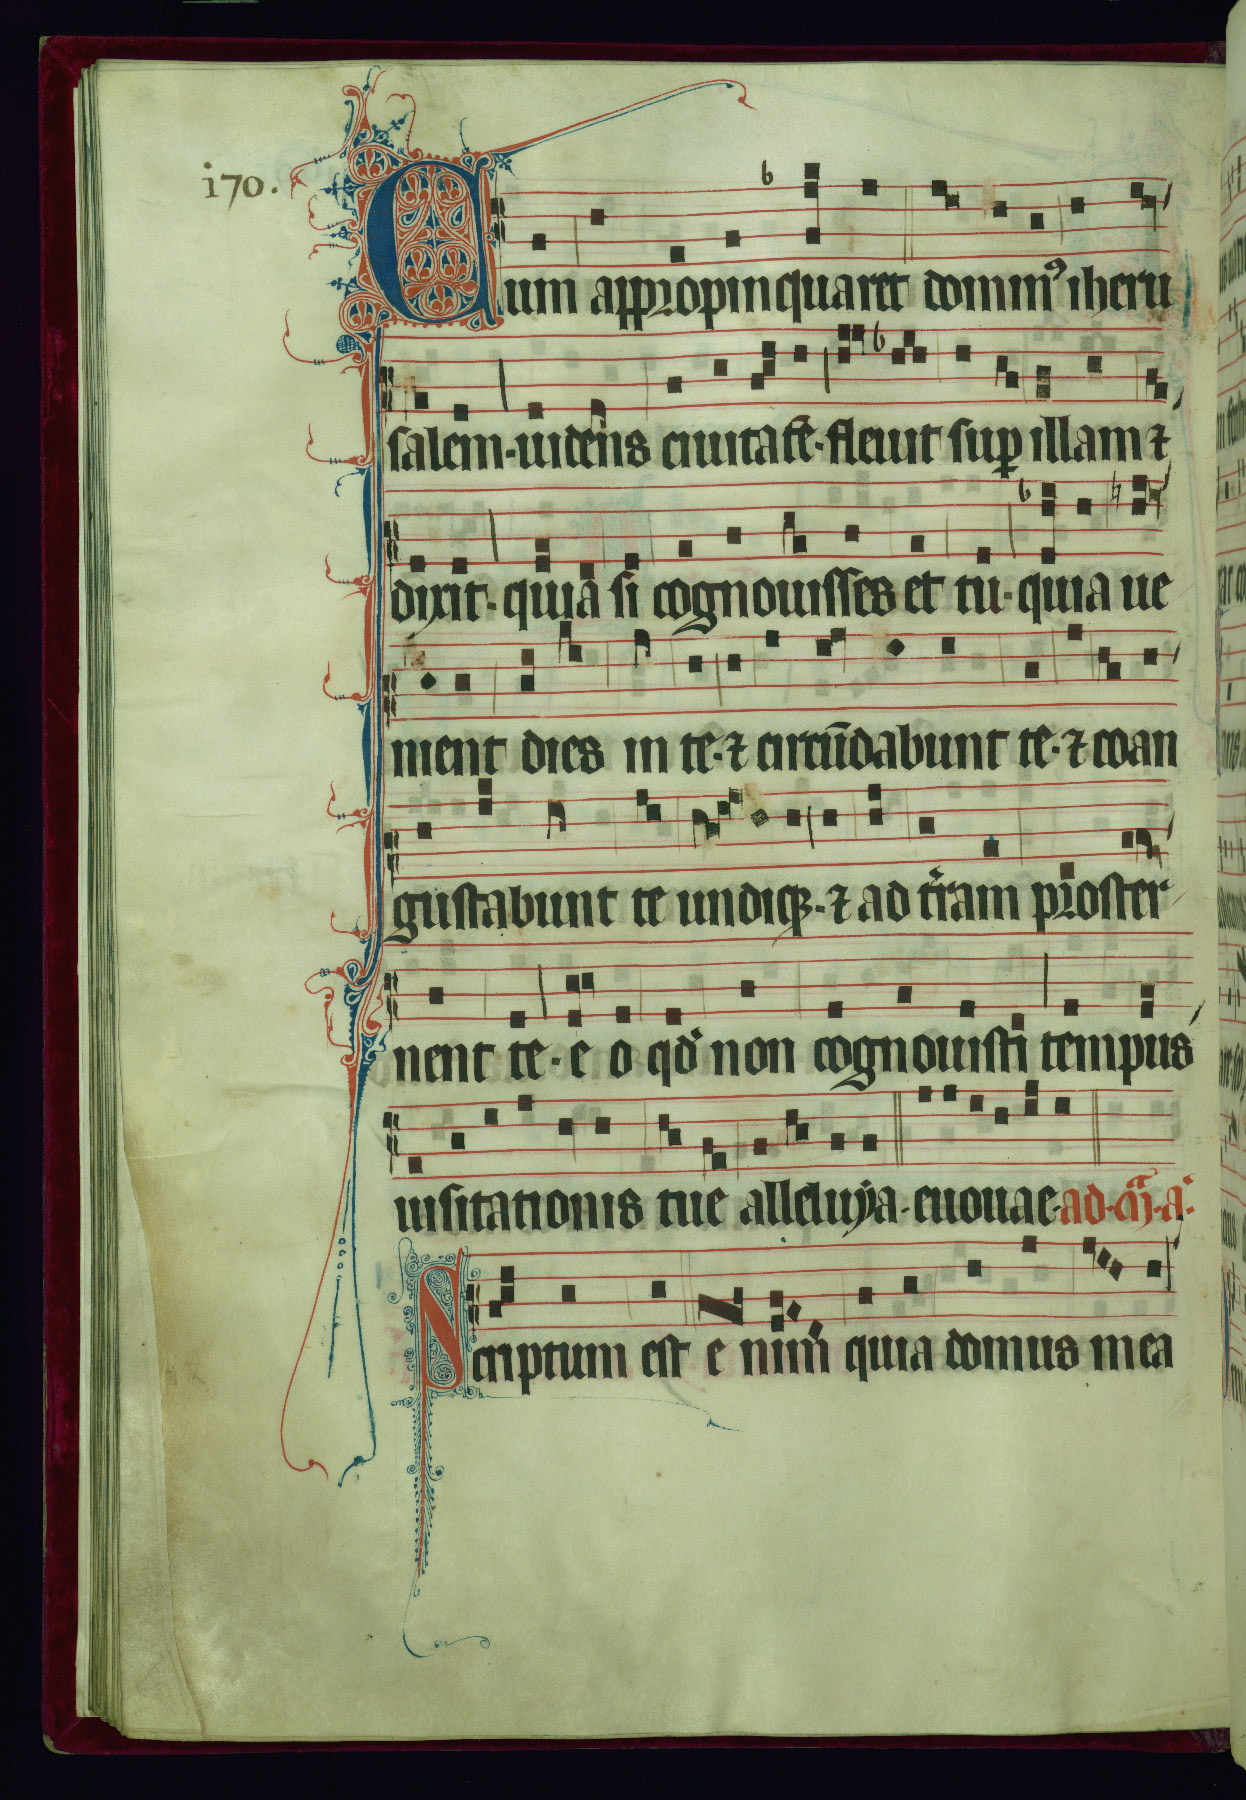 170.
Cum appropinquaret domin⁹ iheru
salem·uidens ciuitatē·fleuit suꝑ illam ⁊
dixit·quia si cognouisses et tu·quia ue
nient dies in te·⁊ circūdabunt te·⁊ coan
gustabunt te undiqꝫ·⁊ ad t̓ram proster
nent te·e o qď non cognouisti tempus
uisitationis tue alleluya·euouae·ad·m̄·a·
Scriptum est e nim quia domus mea